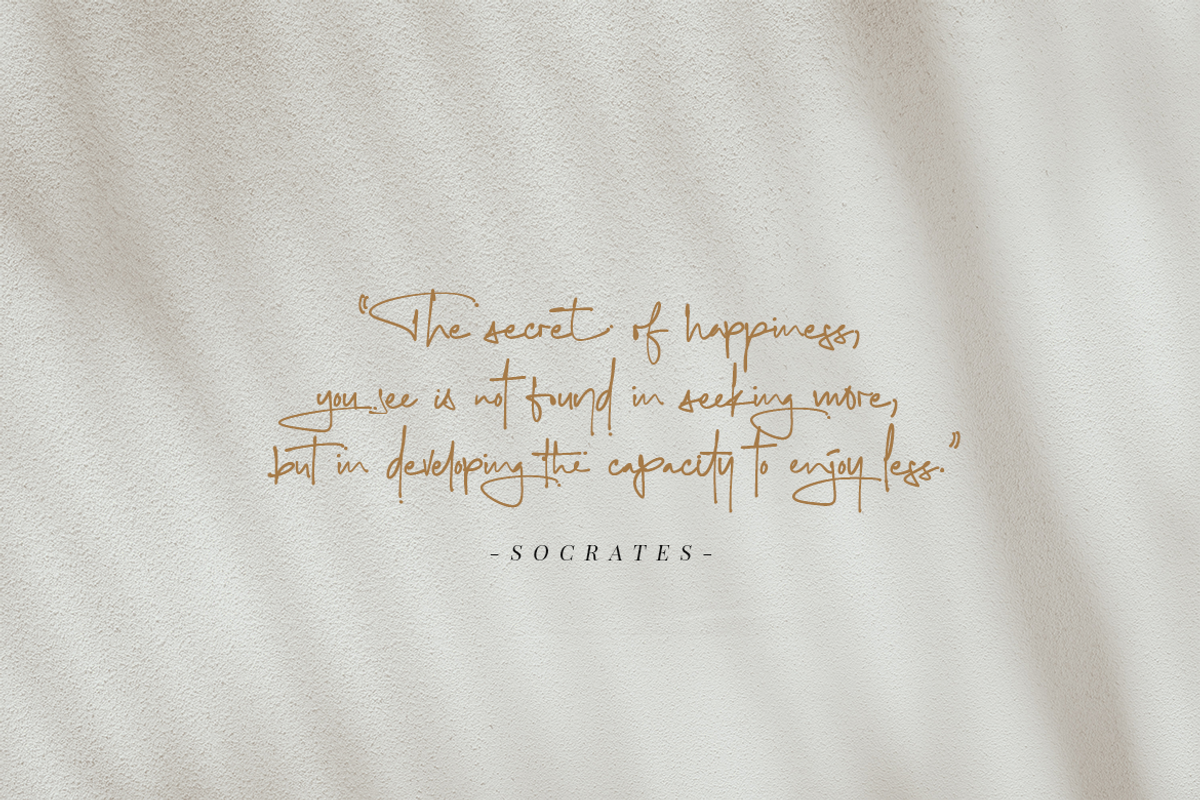 “The secret of happiness,
you see is not found in seeking more,
but in developing the capacity to enjoy less.”
- SOCRATES -